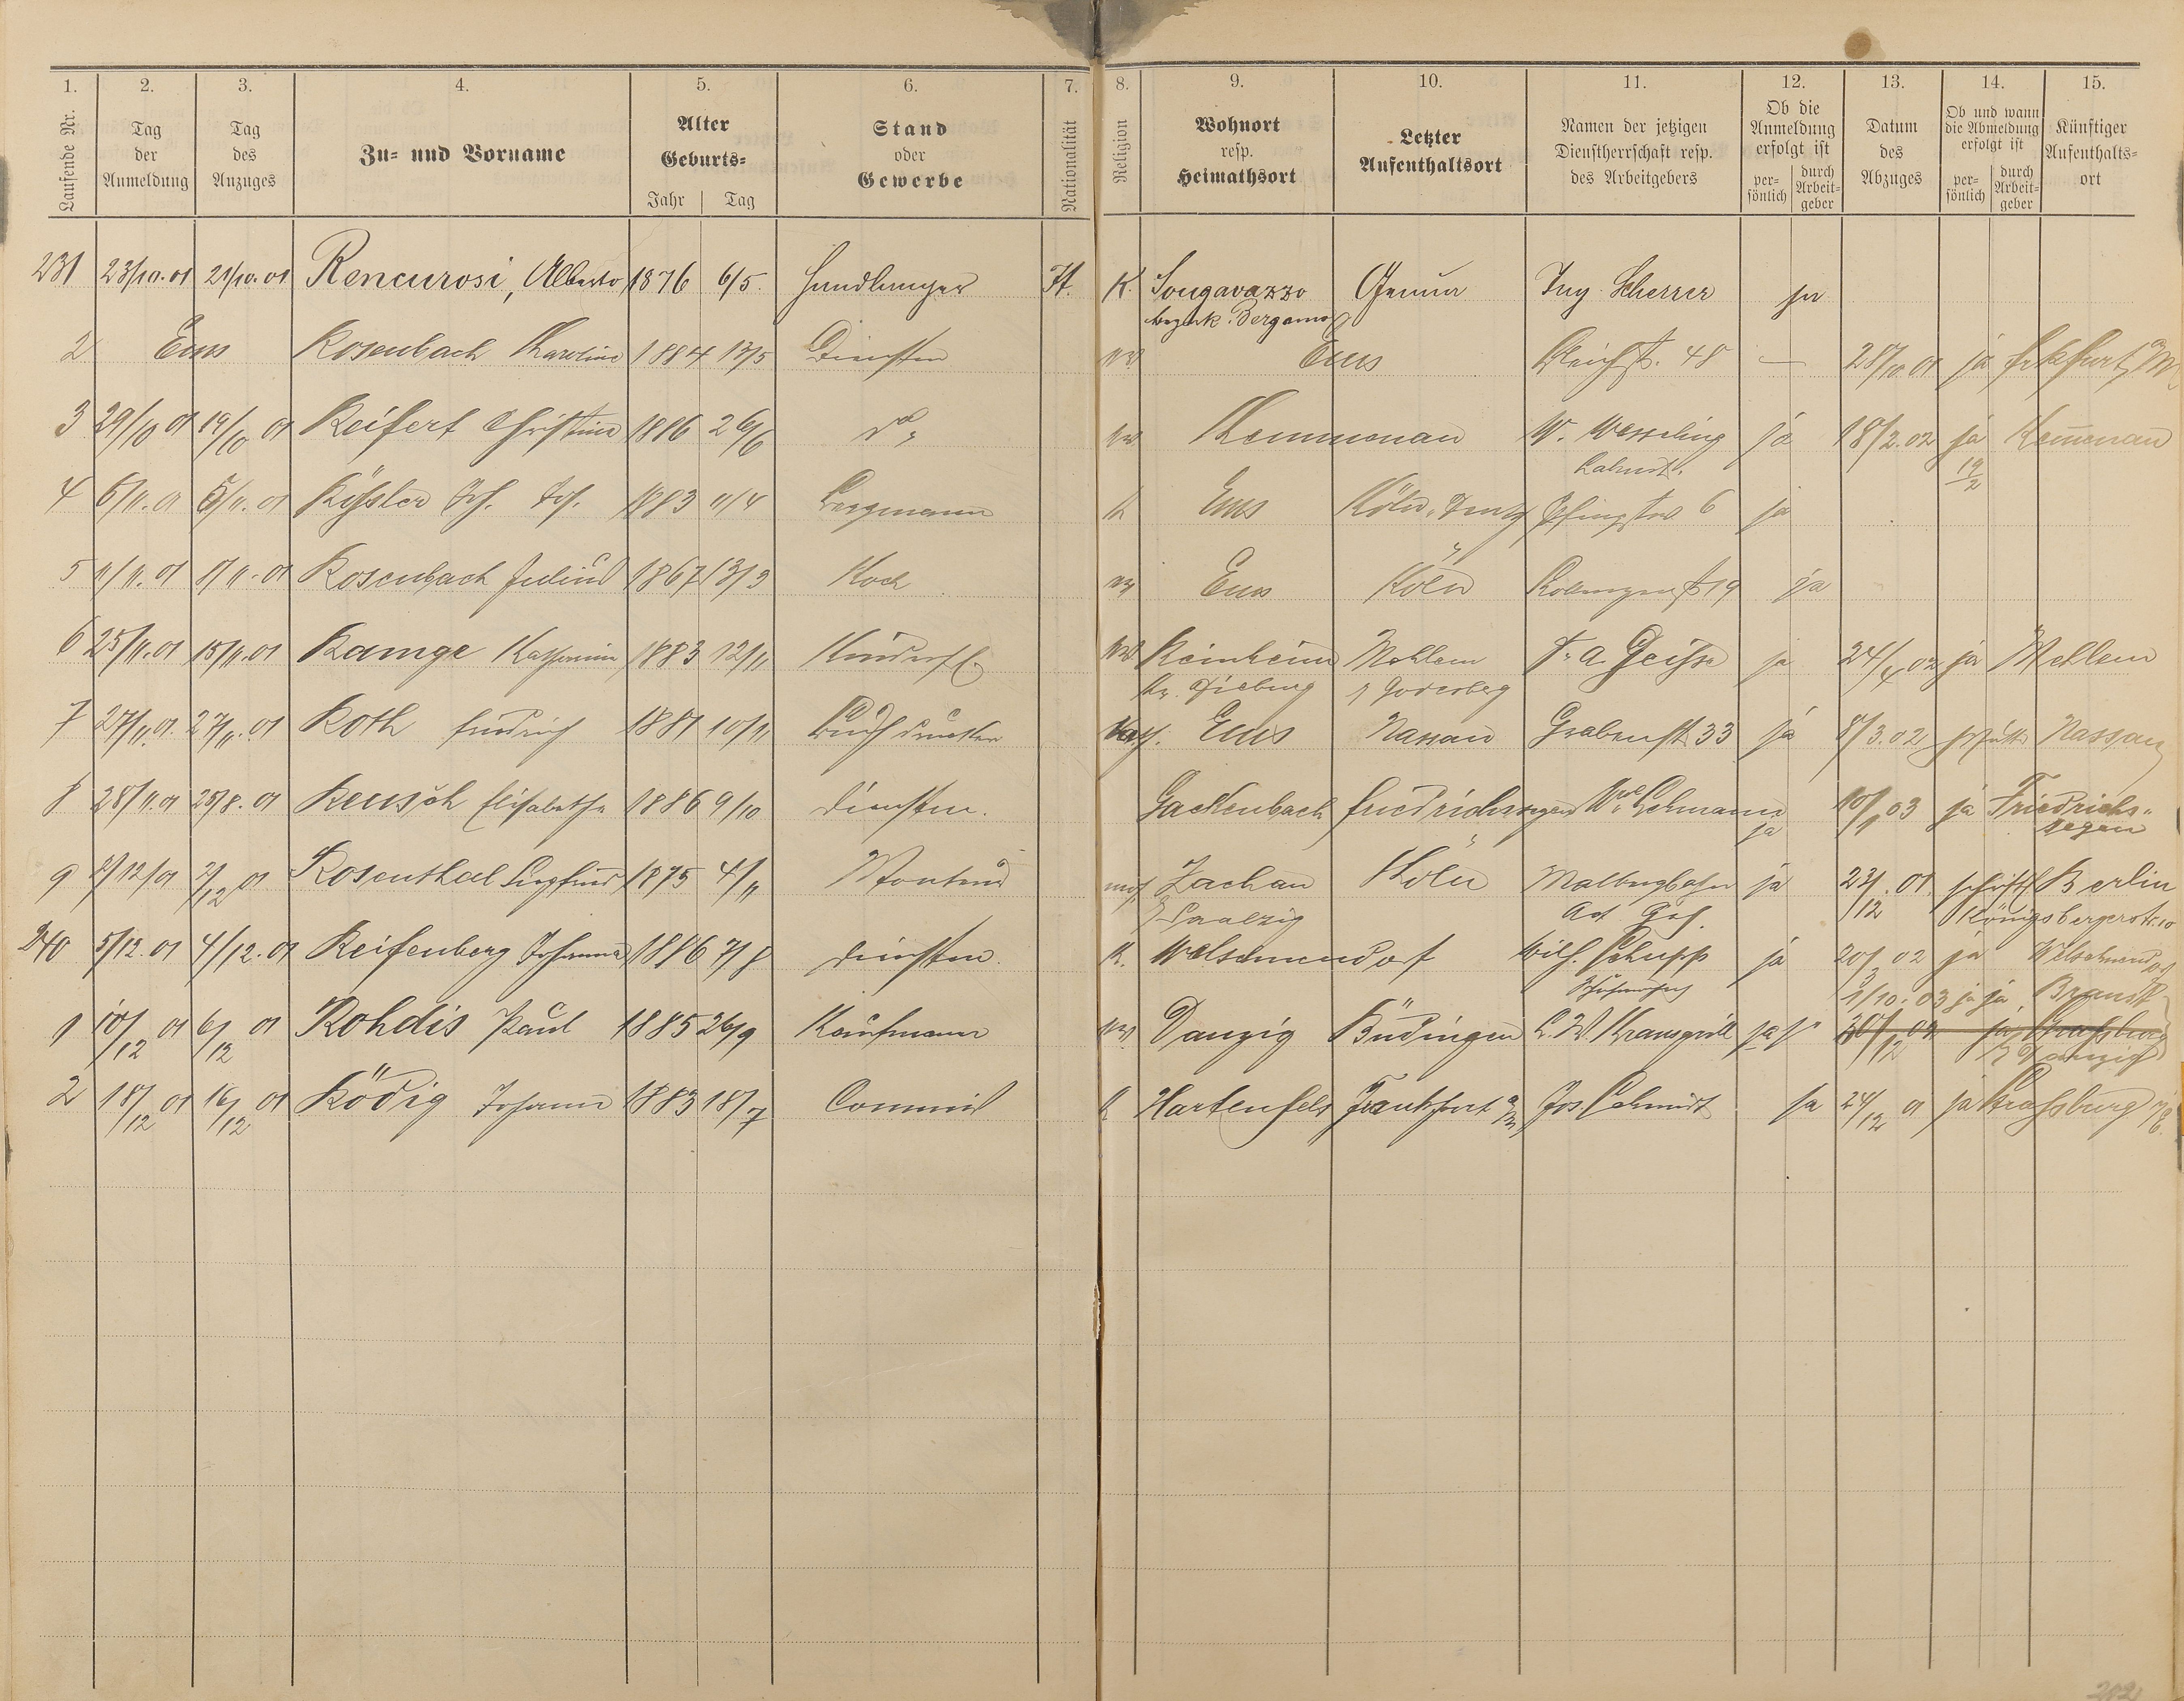 1. 2. 3. 4. 5. 6. 7. 8. 9. 10. 11. 12. 13. 14. 15.
Laufende Nr.
Tag der Anmeldung
Tag des Anzuges
Zu- und Vorname
Alter Geburts-
Jahr Tag
Stand oder Gewerbe
Nationalität
Religion
Wohnort resp. Heimathsort
Letzter Aufenthaltsort
Namen der jetzigen Dienstherrschaft resp. des Arbeitgebers
Ob die Anmeldung erfolgt ist
per-sönlich durch Arbeit-geber
Datum des Abzuges
Ob und wann die Abmeldung erfolgt ist
per-sönlich durch Arbeit-geber
Künftiger Aufenthalts-ort
231 23/10.01 21/10.01 Rencurosi, Alberto 1876 6/5. Handlanger It. K. Songavazzo Genua Ing. Scherrer ja
bezirk Bergamo
2 Ems Rosenbach Karoline 1884 13/5 Dienstm Ems 48 — 28/10 01 ja Frkfurt M
3 29/10 01 19/10 01 Reifert Christine 1886 26/6 do Kemmenau W. Wesseling ja 18/2.02 ja Kemenau
Lahnst. 19/2
4 6/11.01 5/11.01 1883 11/4 Bergmann K Ems Köln 6 ja
5 11/11.01 1/11.01 Rosenbach Julius 1867 13/3 Koch Ems Köln 19 ja
6 25/11.01 15/11.01 Ramge Katharina 1883 12/11 Kinderfl. Reinheim Mehlem Geisse ja 24/4 02 ja Mehlem
Kr. Dieburg Godesberg
7 27/11.01. 27/11.01 Roth Friedrich 1881 10/11 Buchdrucker Ems Nassau Grabenst. 33 ja 8/3.02 Nassau
8 28/11.01 25/8.01 Reusch Elisabetha 1886 9/10 Dienstm. Gackenbach Friedrichssegen Wwe Lehmann ja 10/1 03 ja Friedrichs-segen
9 2/12/01 2/12 01 Rosenthal Siegfried 1875 4/11 mos. Zachan Köln Malbergbahn ja 23/12.01. Berlin
Saatzig Act Ges. Königsbergerstr. 10
240 5/12.01 4/12.01 Reifenberg Johanna 1886 7/8 Dienstm. K. Welschneudorf Wilh. Schupp ja 20/3 02 ja Welschneudorf
1 10/12 01 6/12 01 Rohdis Paul 1885 26/9 Kaufmann Danzig Büdingen ja 1/10.03 ja ja Brandt
Danzig
2 18/12 01 16/12 01 Rödig Johann 1883 18/7 Commis K Hartenfels Frankfurt a/M Jos. Schmidt ja 24/12 01 ja Straßburg i/E.